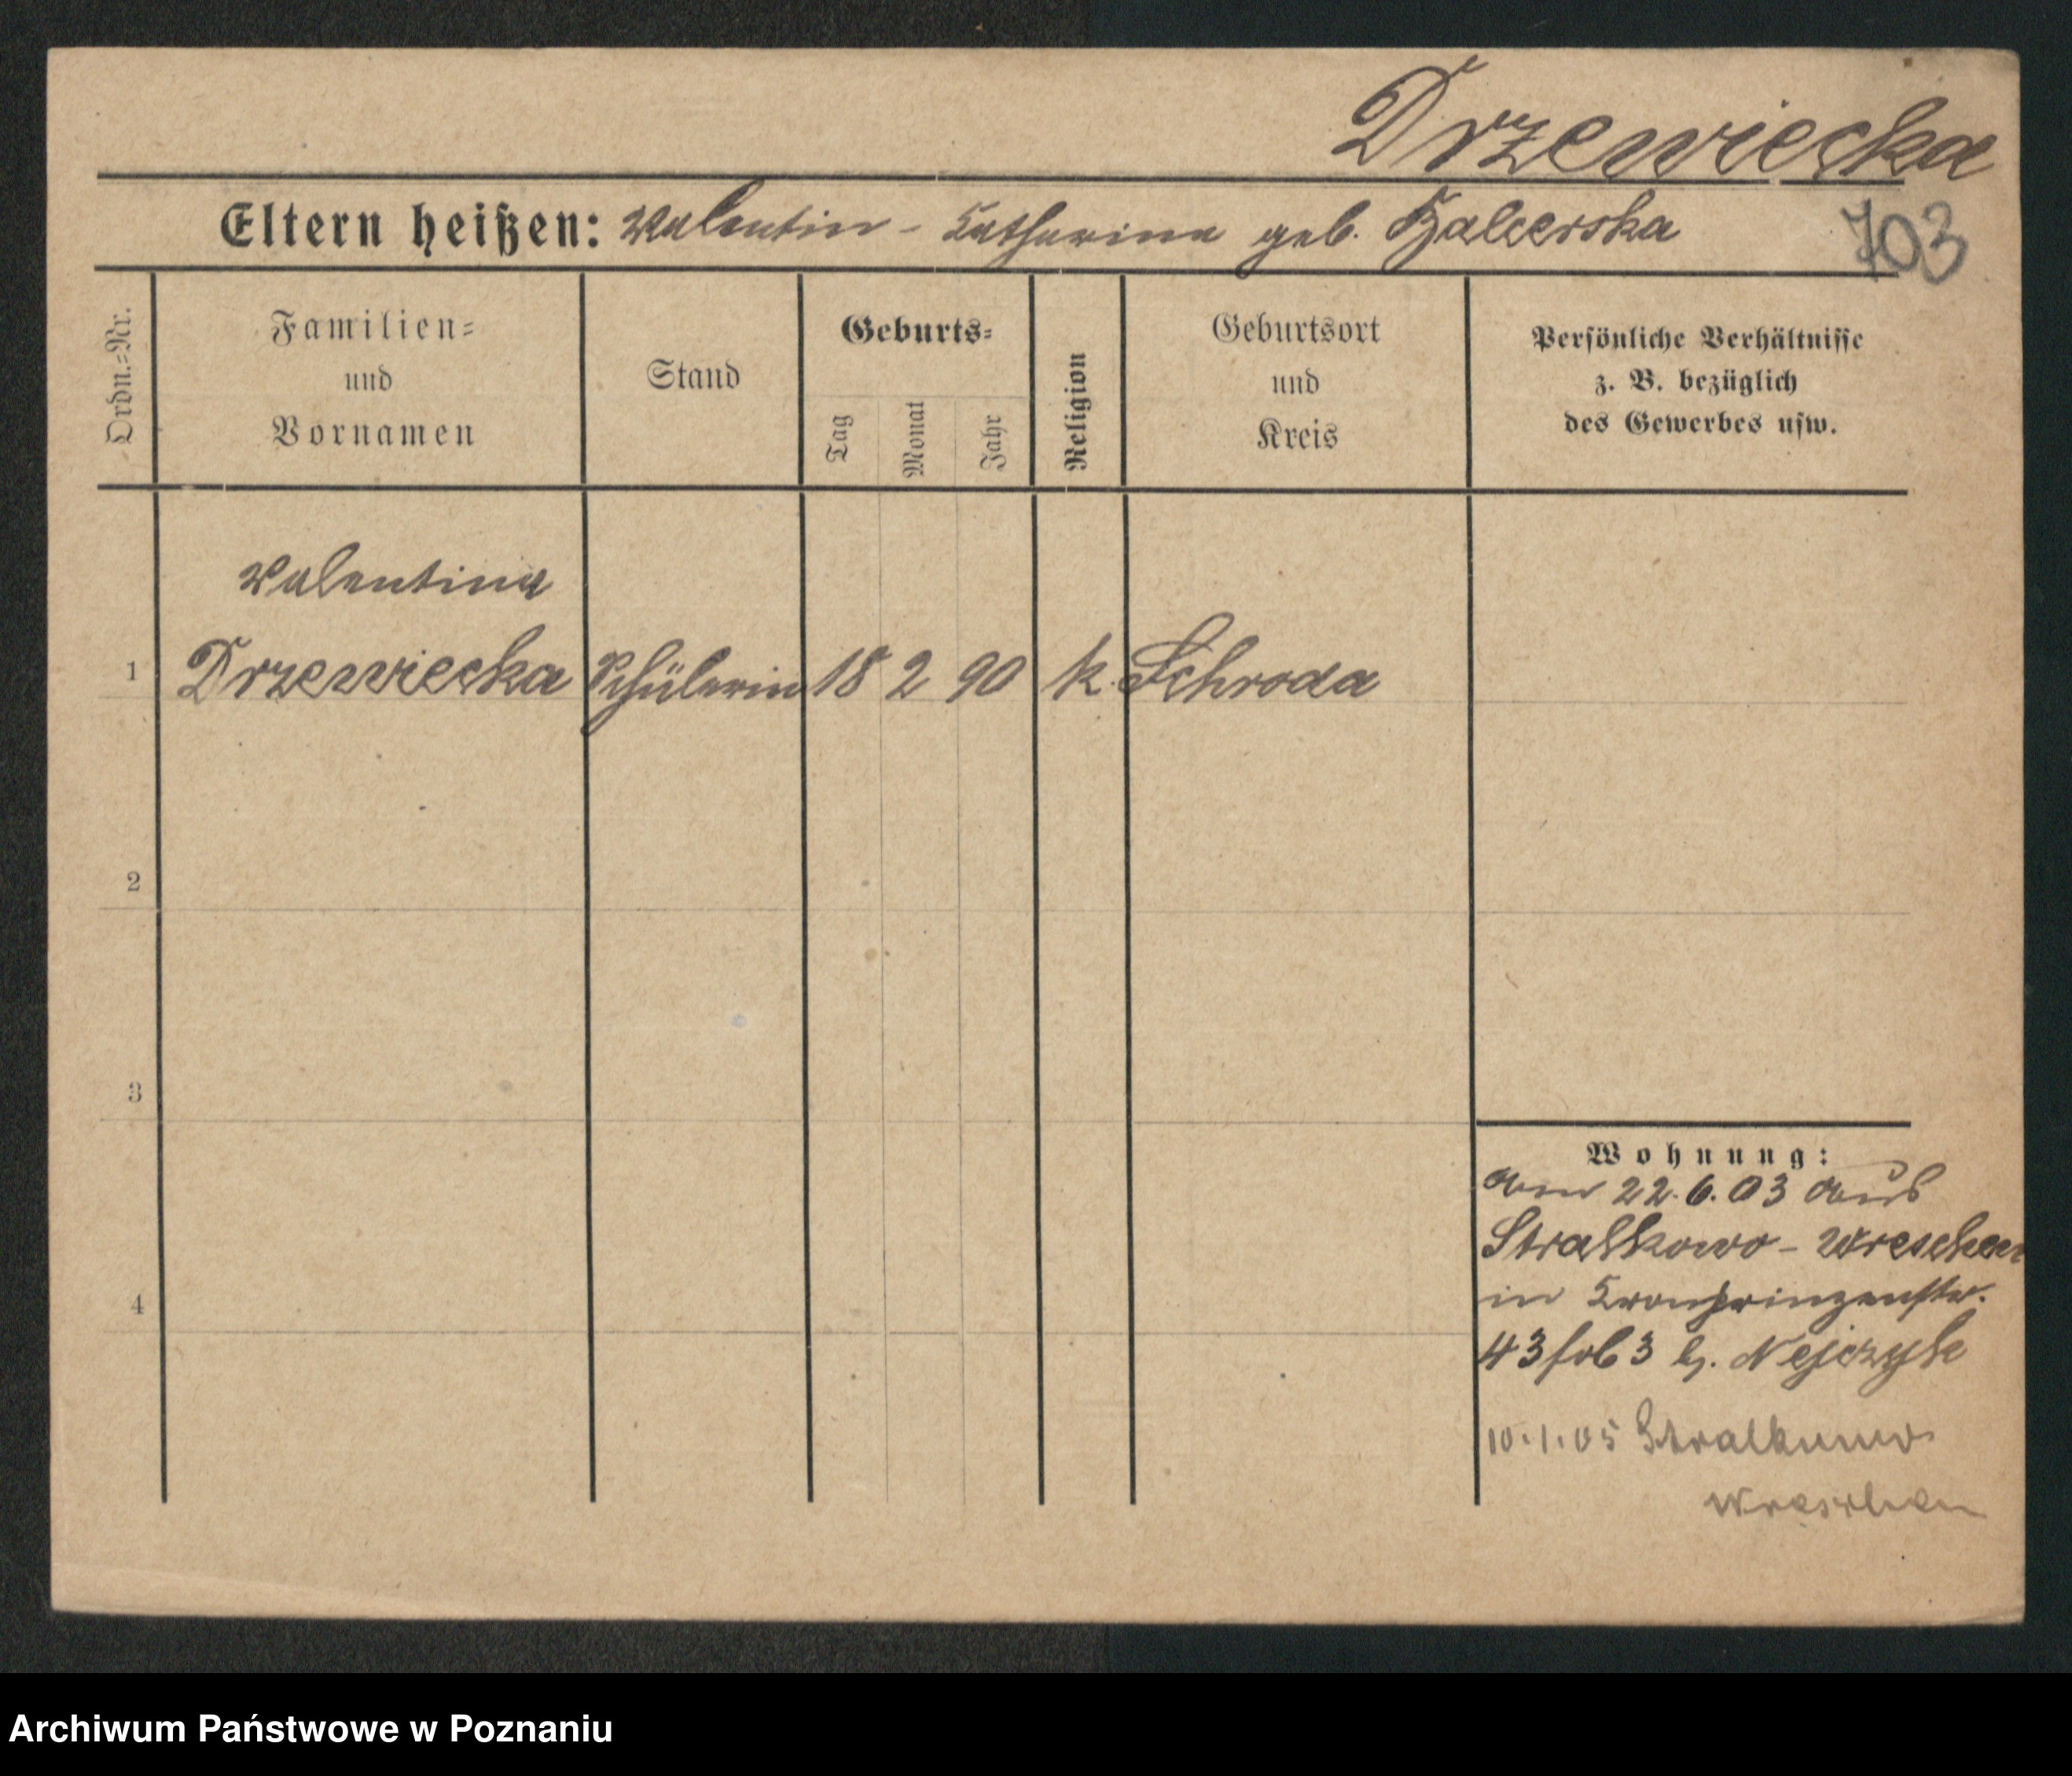 Drzewiecka
Eltern heißen: Valentin - Katharina geb.
703
Ordn.=Nr.
Familien=
und
Vornamen
Stand
Geburts=
Tag
Monat
Jahr
Religion
Geburtsort
und
Kreis
Persönliche Verhältnisse
z. B. bezüglich
des Gewerbes usw.
Valentina
1 Drzewiecka Schülerin 18 2 90 k. Schroda
2
3
4
Wohnung:
am 22.6.03 aus
Stralkowo - Wreschen
in Kronprinzenstr.
43 3 b. Nejczyk
10.1.05 Stralkowo
Wreschen
Archiwum Państwowe w Poznaniu